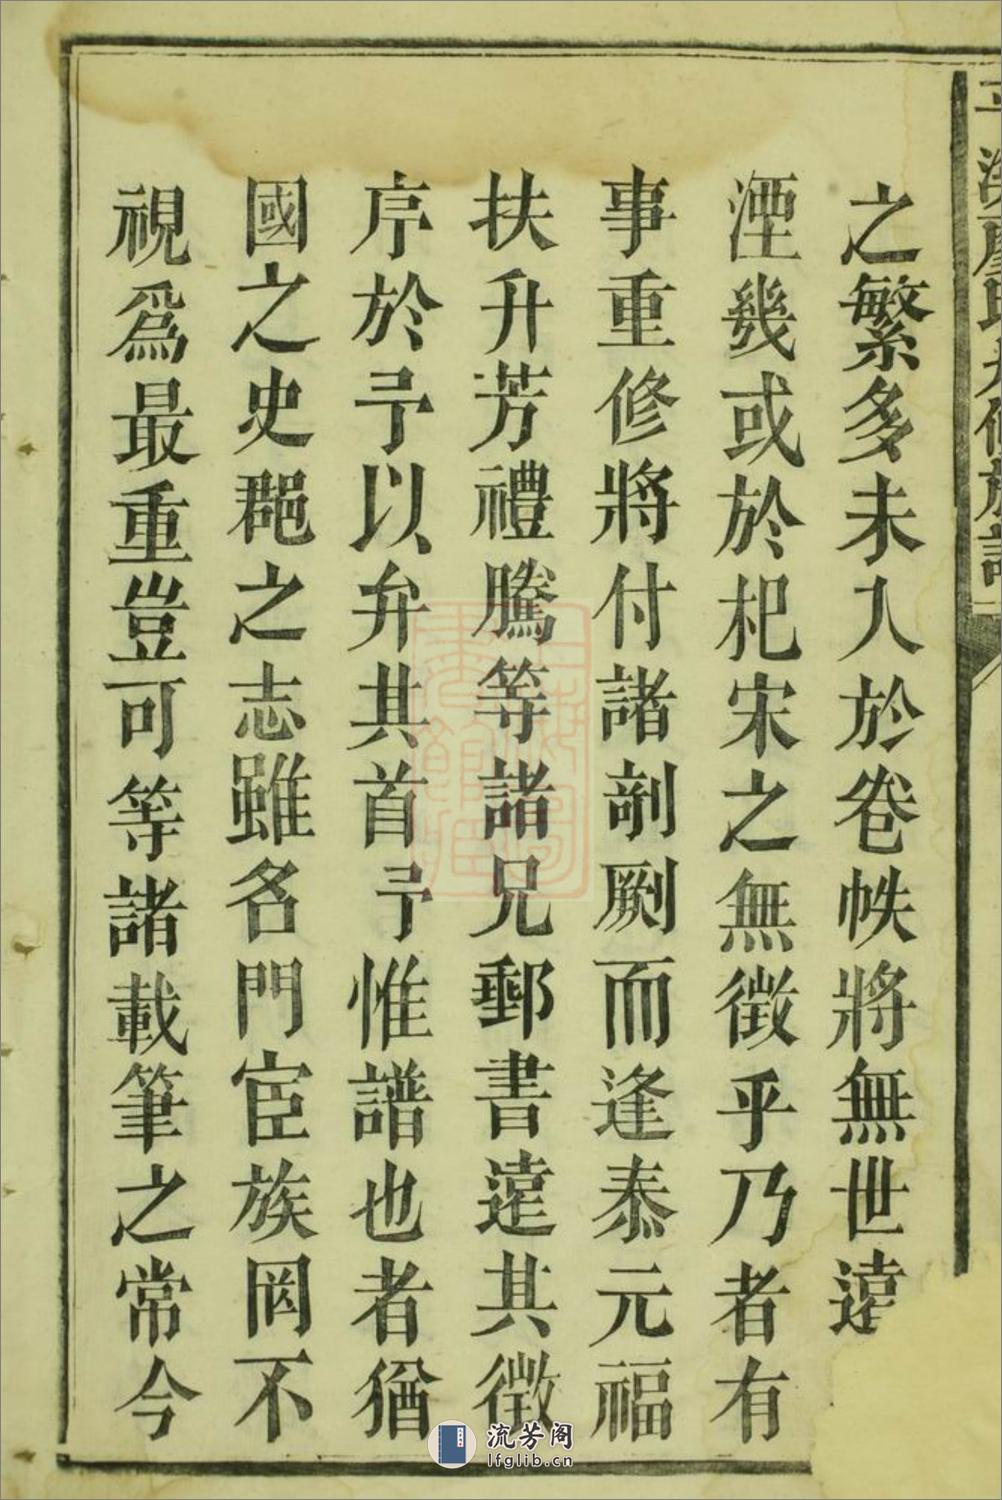 之繁多未入於卷帙將無世遠
湮幾或於杞宋之無徵乎乃者有
事重修將付諸剞劂而逢泰元福
扶升芳禮騰等諸兄郵書遠其徵
序於予以弁其首予惟譜也者猶
國之史郡之志雖名門宦族罔不
視爲最重豈可等諸載筆之常今
流芳阁
lfglib.cn